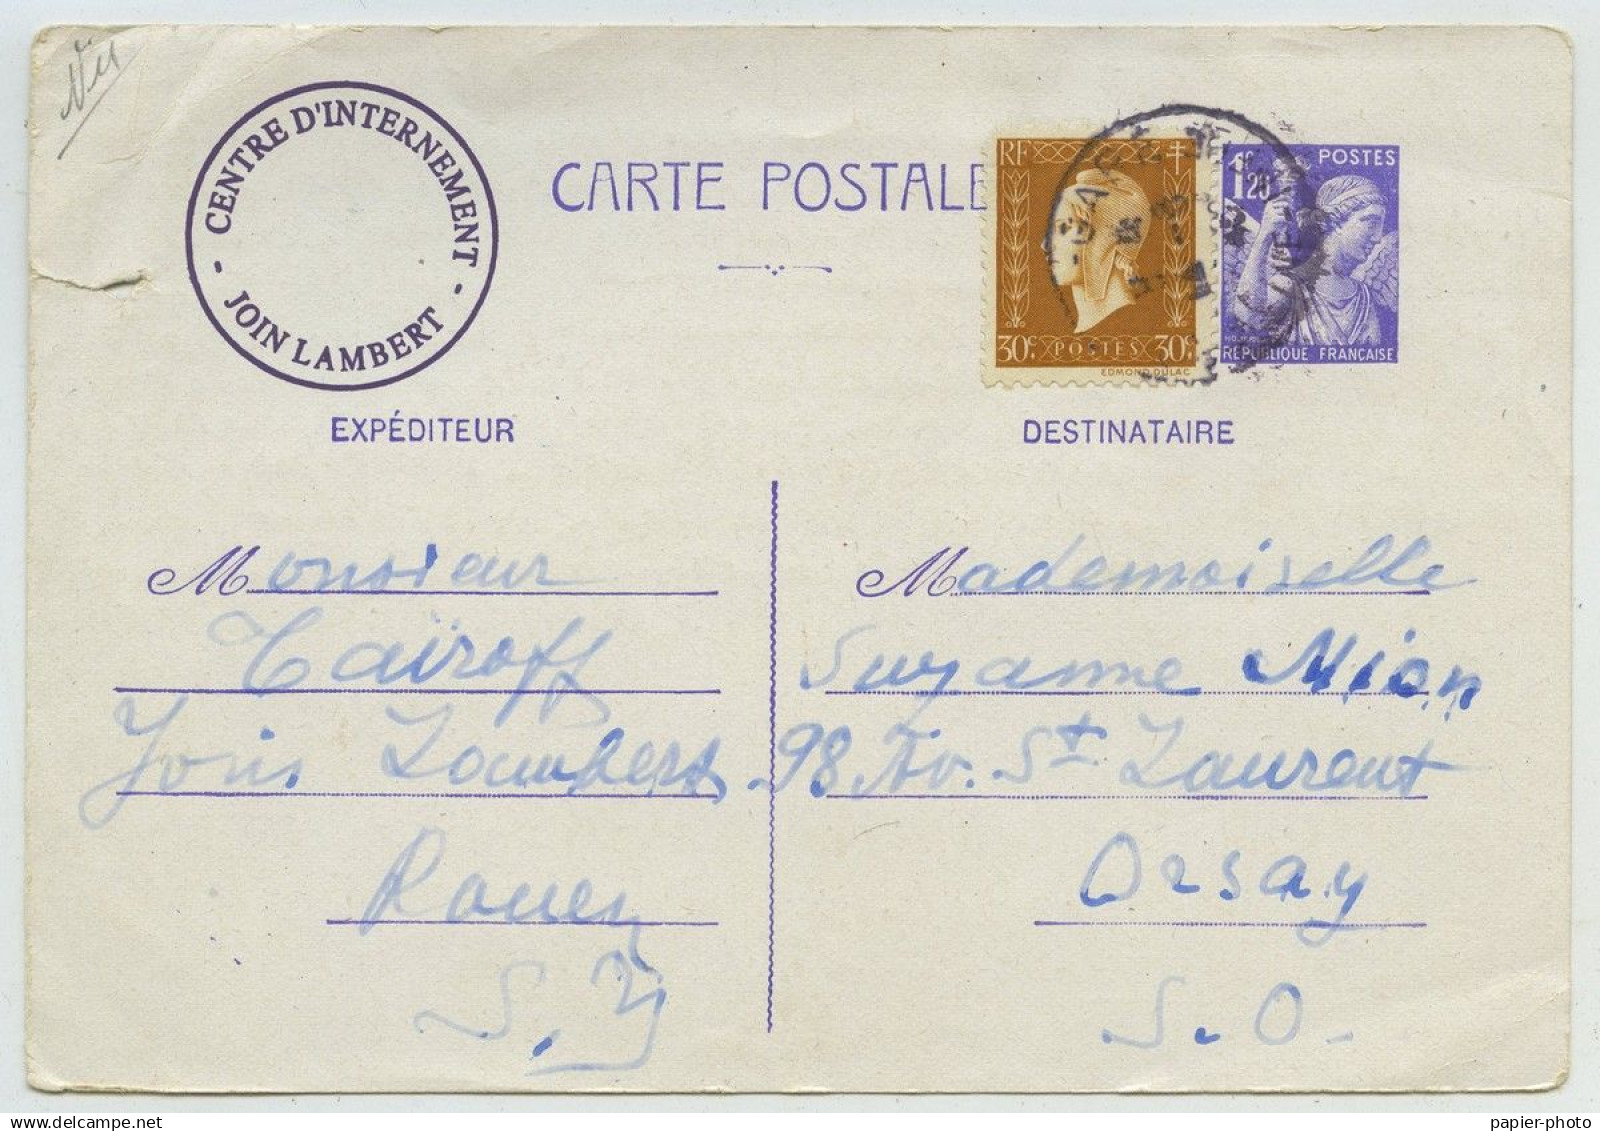 Vu
CENTRE D'INTERNEMENT
- JOIN LAMBERT -
CARTE POSTALE
RF
30c POSTES 30c
EDMOND DULAC
POSTES
1F20
RÉPUBLIQUE FRANÇAISE
GARE
EXPÉDITEUR
DESTINATAIRE
Monsieur
Taïroff
Join Lambert
Rouen
S. I
Mademoiselle
Suzanne Mion
98 Av. St Laurent
Orsay
S.O.
papier-photo